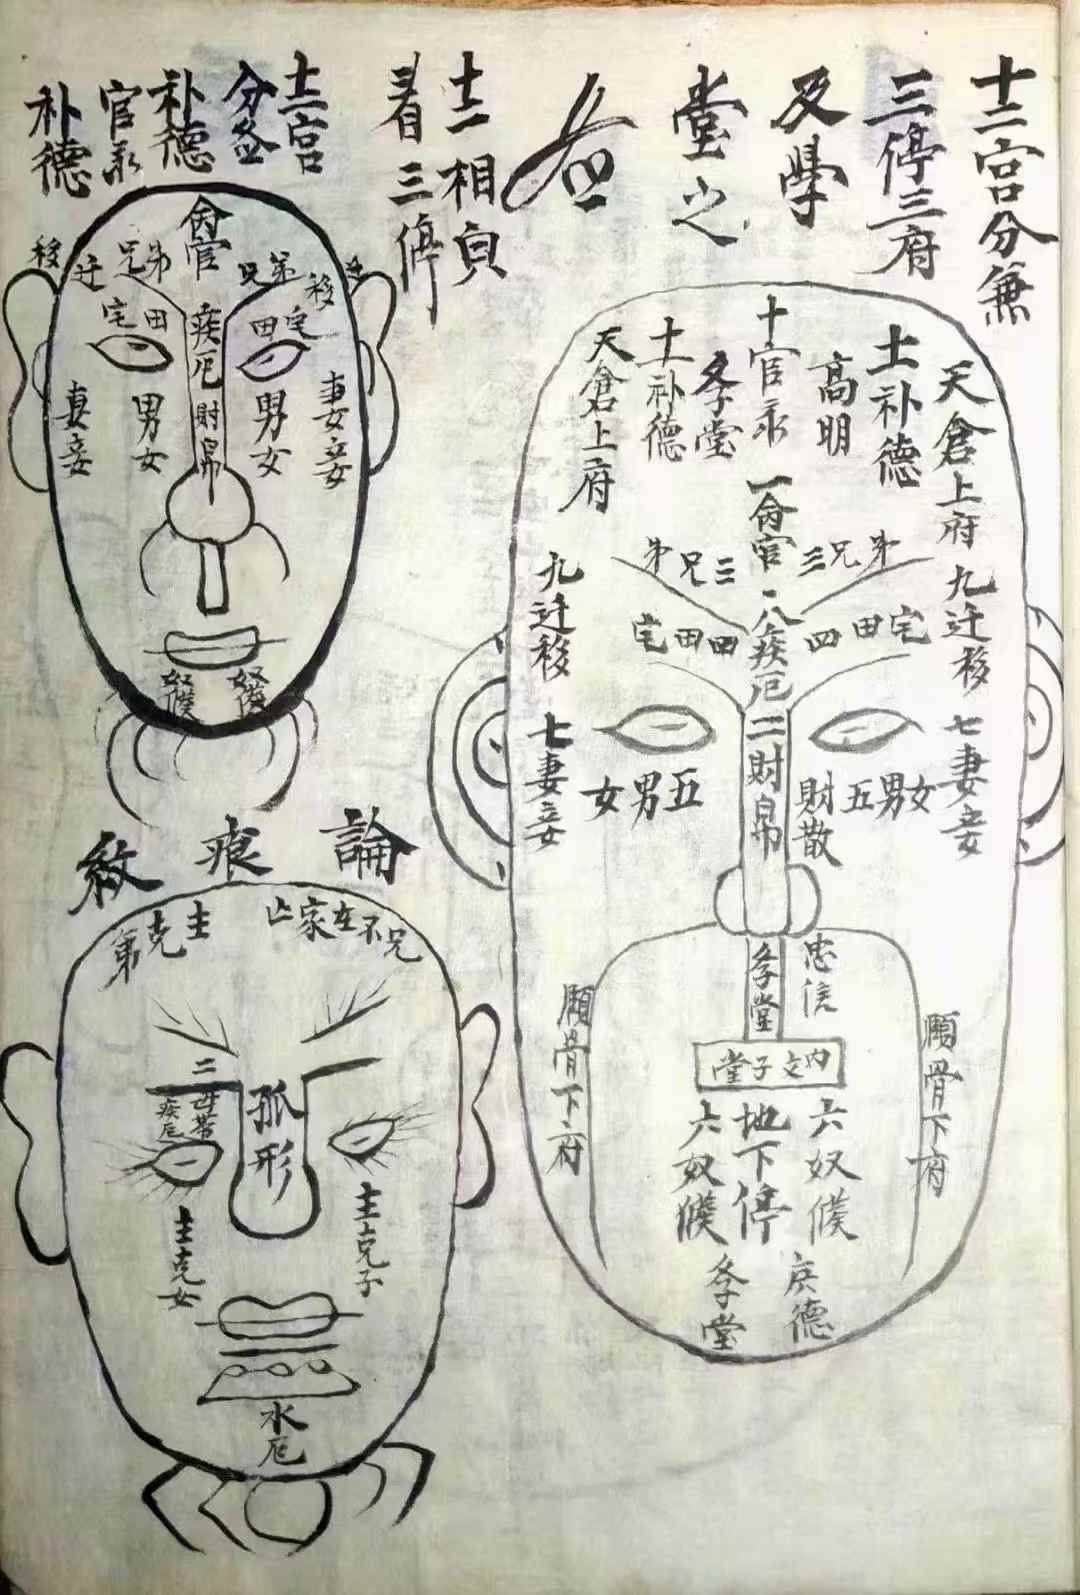 十二宫分兼
三停三府
及學
堂之
十二相貞
看三停
十二宫
分
补德
官永
补德
天倉上府
士补德
高明
十官永
冬堂
士补德
天倉上府
一命官
三兄弟
弟兄三
九迁移
九迁移
八疾厄
四田宅
宅田四
二財帛
七妻妾
七妻妾
五男女
財散
女男五
忠信
冬堂
内文子堂
顴骨下府
顴骨下府
六奴僕
地下停
六奴僕
冬堂
命官
兄弟
兄弟
移迁
移迁
田宅
宅田
疾厄
財帛
男女
男女
妻妾
妻妾
奴僕
奴僕
論痕紋
兄不在家亡
主克弟
二
疾厄
孤形
主克子
主克女
水厄